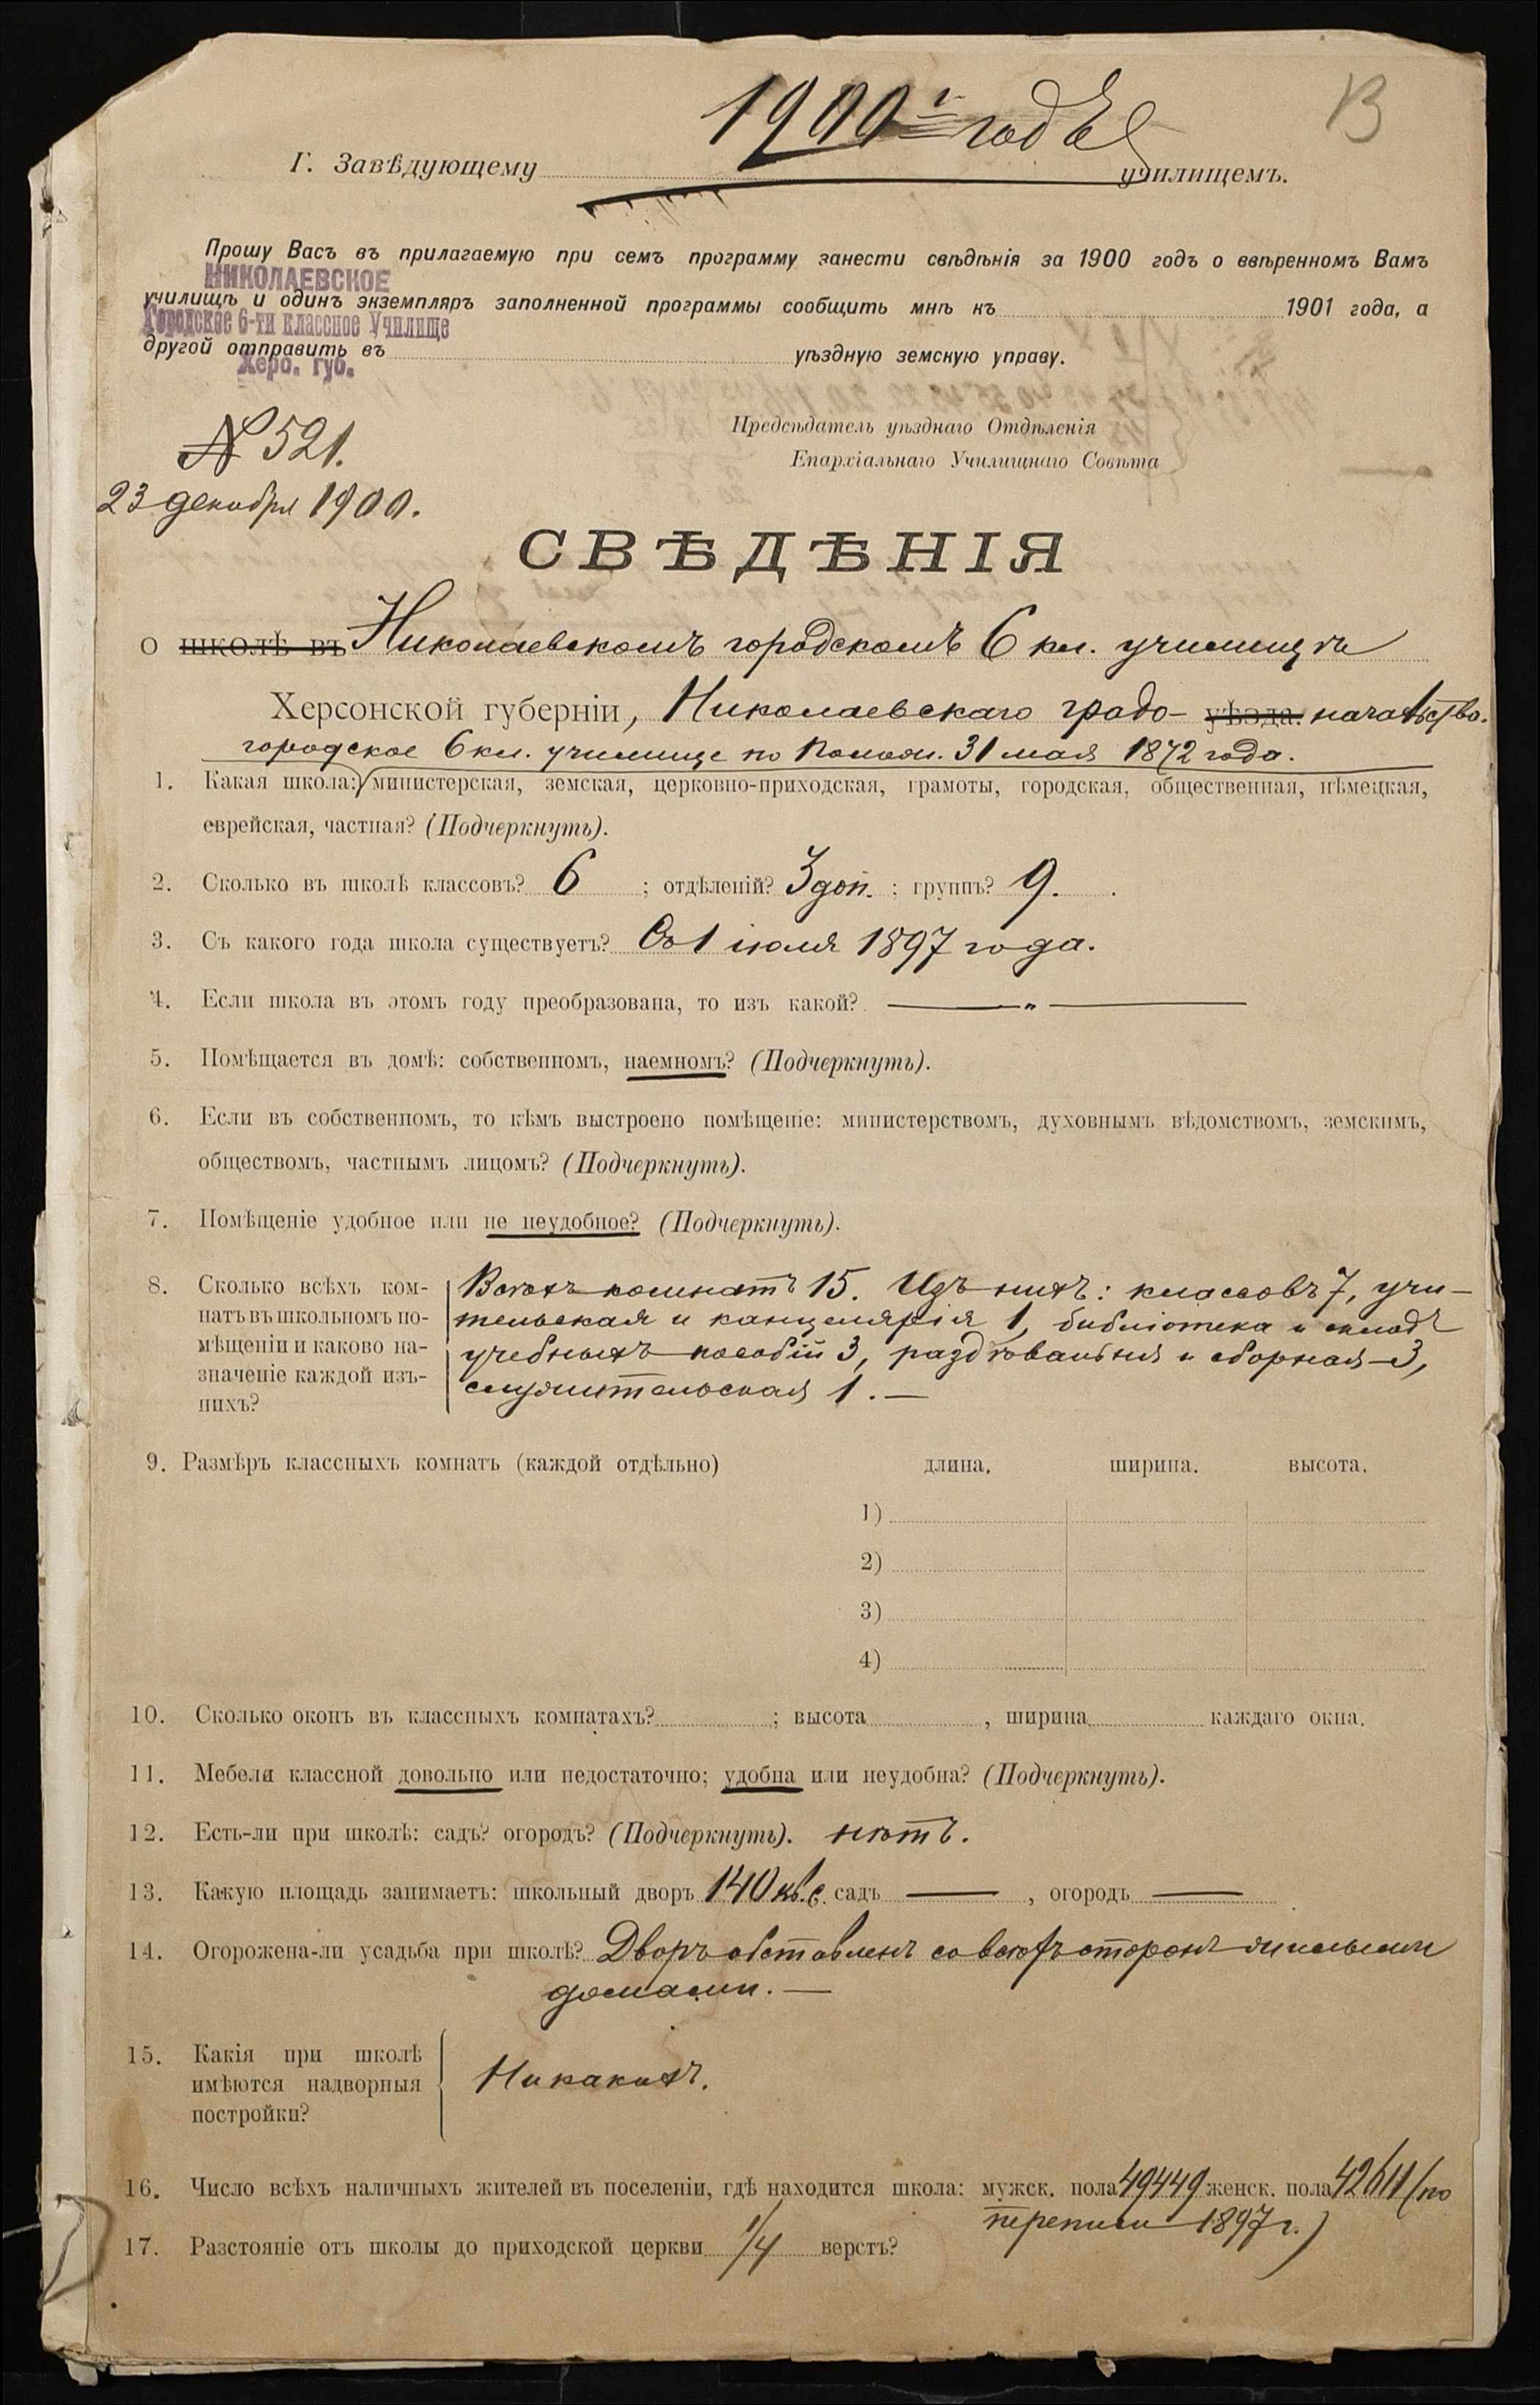 1900 г. годъ
В
Г. Завѣдующему училищемъ.
Прошу Васъ въ прилагаемую при семъ программу занести свѣдѣнія за 1900 годъ о ввѣренномъ Вамъ
НИКОЛАЕВСКОЕ
училищѣ и одинъ экземпляръ заполненной программы сообщить мнѣ къ 1901 года, а
Городское 6-ти классное Училище
другой отправить въ уѣздную земскую управу.
Херс. губ.
Предсѣдатель уѣзднаго Отдѣленія
Епархіальнаго Училищнаго Совѣта
№ 521.
23 декабря 1900.
СВѢДѢНІЯ
о школѣ въ Николаевскомъ городскомъ 6 кл. училищѣ
Херсонской губерніи, Николаевскаго градо- уѣзда. начальство.
городское 6 кл. училище по Полож. 31 мая 1872 года.
1. Какая школа: министерская, земская, церковно-приходская, грамоты, городская, общественная, нѣмецкая,
еврейская, частная? (Подчеркнуть).
2. Сколько въ школѣ классовъ? 6 ; отдѣленій? 3 доп. ; группъ? 9.
3. Съ какого года школа существуетъ? Съ 1 іюля 1897 года.
4. Если школа въ этомъ году преобразована, то изъ какой? — „ —
5. Помѣщается въ домѣ: собственномъ, наемномъ? (Подчеркнуть).
6. Если въ собственномъ, то кѣмъ выстроено помѣщеніе: министерствомъ, духовнымъ вѣдомствомъ, земскимъ,
обществомъ, частнымъ лицомъ? (Подчеркнуть).
7. Помѣщеніе удобное или не неудобное? (Подчеркнуть).
8. Сколько всѣхъ ком-
натъ въ школьномъ по-
мѣщеніи и каково на-
значеніе каждой изъ-
нихъ?
Всѣхъ комнатъ 15. Изъ нихъ: классовъ 7, учи-
тельская и канцелярія 1, библіотека и складъ
учебныхъ пособій 3, раздѣвальня и сборная — 3,
служительская 1. —
9. Размѣръ классныхъ комнатъ (каждой отдѣльно) длина. ширина. высота.
1)
2)
3)
4)
10. Сколько оконъ въ классныхъ комнатахъ? ; высота , ширина каждаго окна.
11. Мебели классной довольно или недостаточно; удобна или неудобна? (Подчеркнуть).
12. Есть-ли при школѣ: садъ? огородъ? (Подчеркнуть). нѣтъ.
13. Какую площадь занимаетъ: школьный дворъ 140 кв. с. садъ — , огородъ —
14. Огорожена-ли усадьба при школѣ? Дворъ обставленъ со всѣхъ сторонъ жилыми
домами. —
15. Какія при школѣ
имѣются надворныя
постройки?
Никакихъ.
16. Число всѣхъ наличныхъ жителей въ поселеніи, гдѣ находится школа: мужск. пола 49449 женск. пола 42611 (по
переписи 1897 г.)
17. Разстояніе отъ школы до приходской церкви 1/4 верстъ?